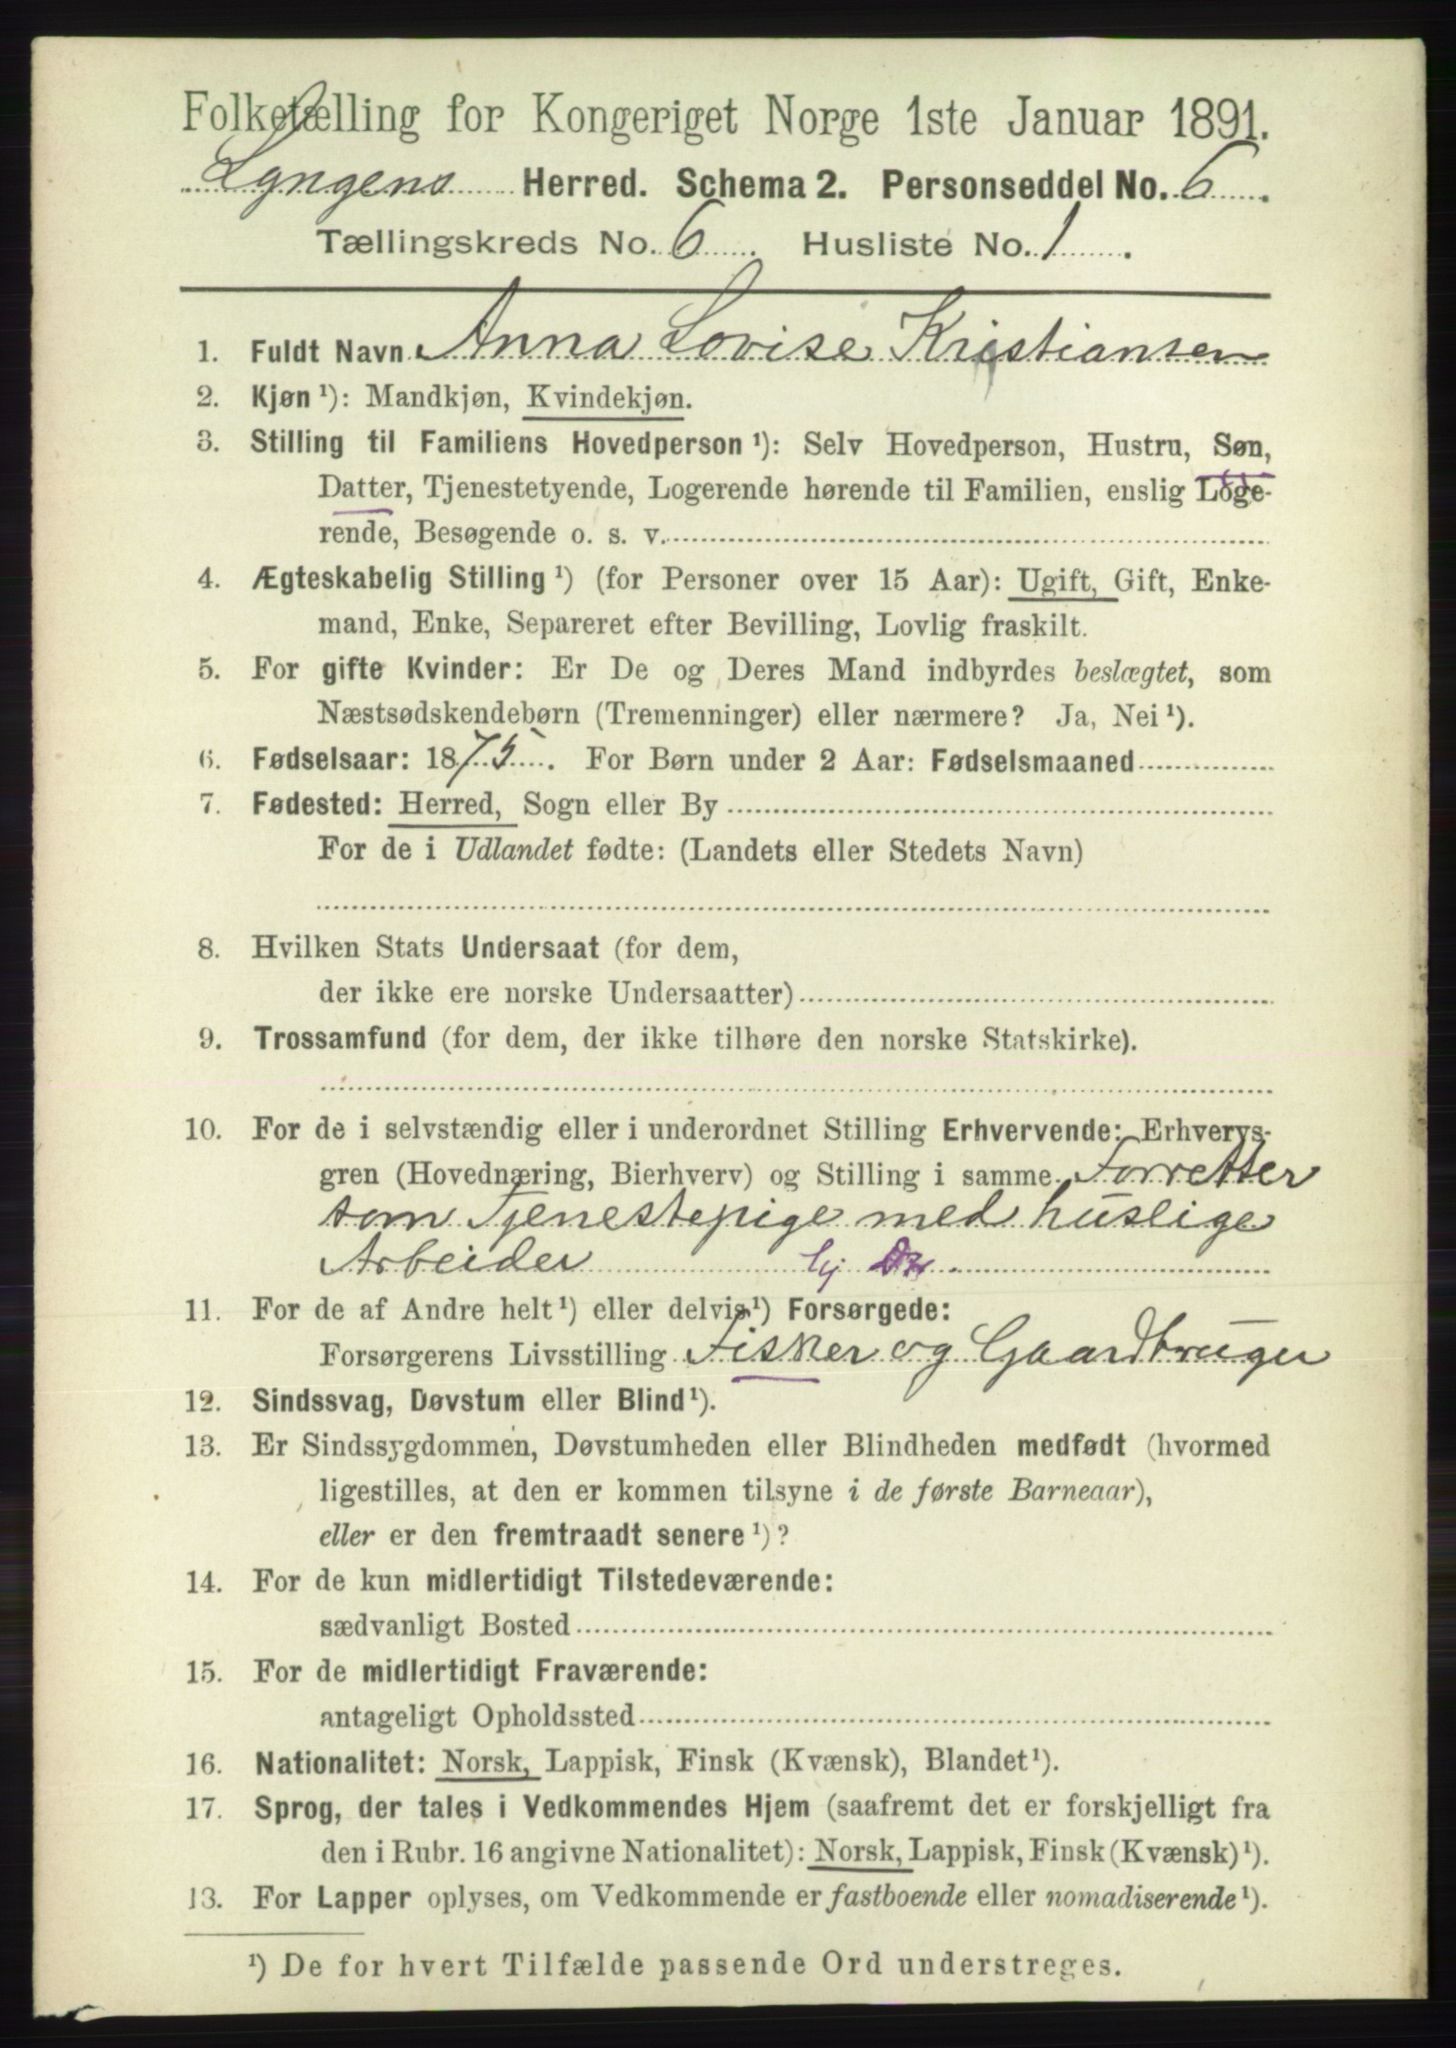 Folketælling for Kongeriget Norge 1ste Januar 1891.
Lyngens Herred. Schema 2. Personseddel No. 6.
Tællingskreds No. 6. Husliste No. 1.
1. Fuldt Navn Anna Lovise Kristiansen
2. Kjøn ¹): Mandkjøn, Kvindekjøn.
3. Stilling til Familiens Hovedperson ¹): Selv Hovedperson, Hustru, Søn,
Datter, Tjenestetyende, Logerende hørende til Familien, enslig Loge-
rende, Besøgende o. s. v.
4. Ægteskabelig Stilling ¹) (for Personer over 15 Aar): Ugift, Gift, Enke-
mand, Enke, Separeret efter Bevilling, Lovlig fraskilt.
5. For gifte Kvinder: Er De og Deres Mand indbyrdes beslægtet, som
Næstsødskendebørn (Tremenninger) eller nærmere? Ja, Nei ¹).
6. Fødselsaar: 1875. For Børn under 2 Aar: Fødselsmaaned
7. Fødested: Herred, Sogn eller By
For de i Udlandet fødte: (Landets eller Stedets Navn)
8. Hvilken Stats Undersaat (for dem,
der ikke ere norske Undersaatter)
9. Trossamfund (for dem, der ikke tilhøre den norske Statskirke).
10. For de i selvstændig eller i underordnet Stilling Erhvervende: Erhvervs-
gren (Hovednæring, Bierhverv) og Stilling i samme Forretter
som Tjenestepige med huslige
Arbeider
11. For de af Andre helt ¹) eller delvis ¹) Forsørgede:
Forsørgerens Livsstilling Fisker og Gaardbruger
12. Sindssvag, Døvstum eller Blind ¹).
13. Er Sindssygdommen, Døvstumheden eller Blindheden medfødt (hvormed
ligestilles, at den er kommen tilsyne i de første Barneaar),
eller er den fremtraadt senere ¹)?
14. For de kun midlertidigt Tilstedeværende:
sædvanligt Bosted
15. For de midlertidigt Fraværende:
antageligt Opholdssted
16. Nationalitet: Norsk, Lappisk, Finsk (Kvænsk), Blandet ¹).
17. Sprog, der tales i Vedkommendes Hjem (saafremt det er forskjelligt fra
den i Rubr. 16 angivne Nationalitet): Norsk, Lappisk, Finsk (Kvænsk) ¹).
13. For Lapper oplyses, om Vedkommende er fastboende eller nomadiserende ¹).
¹) De for hvert Tilfælde passende Ord understreges.